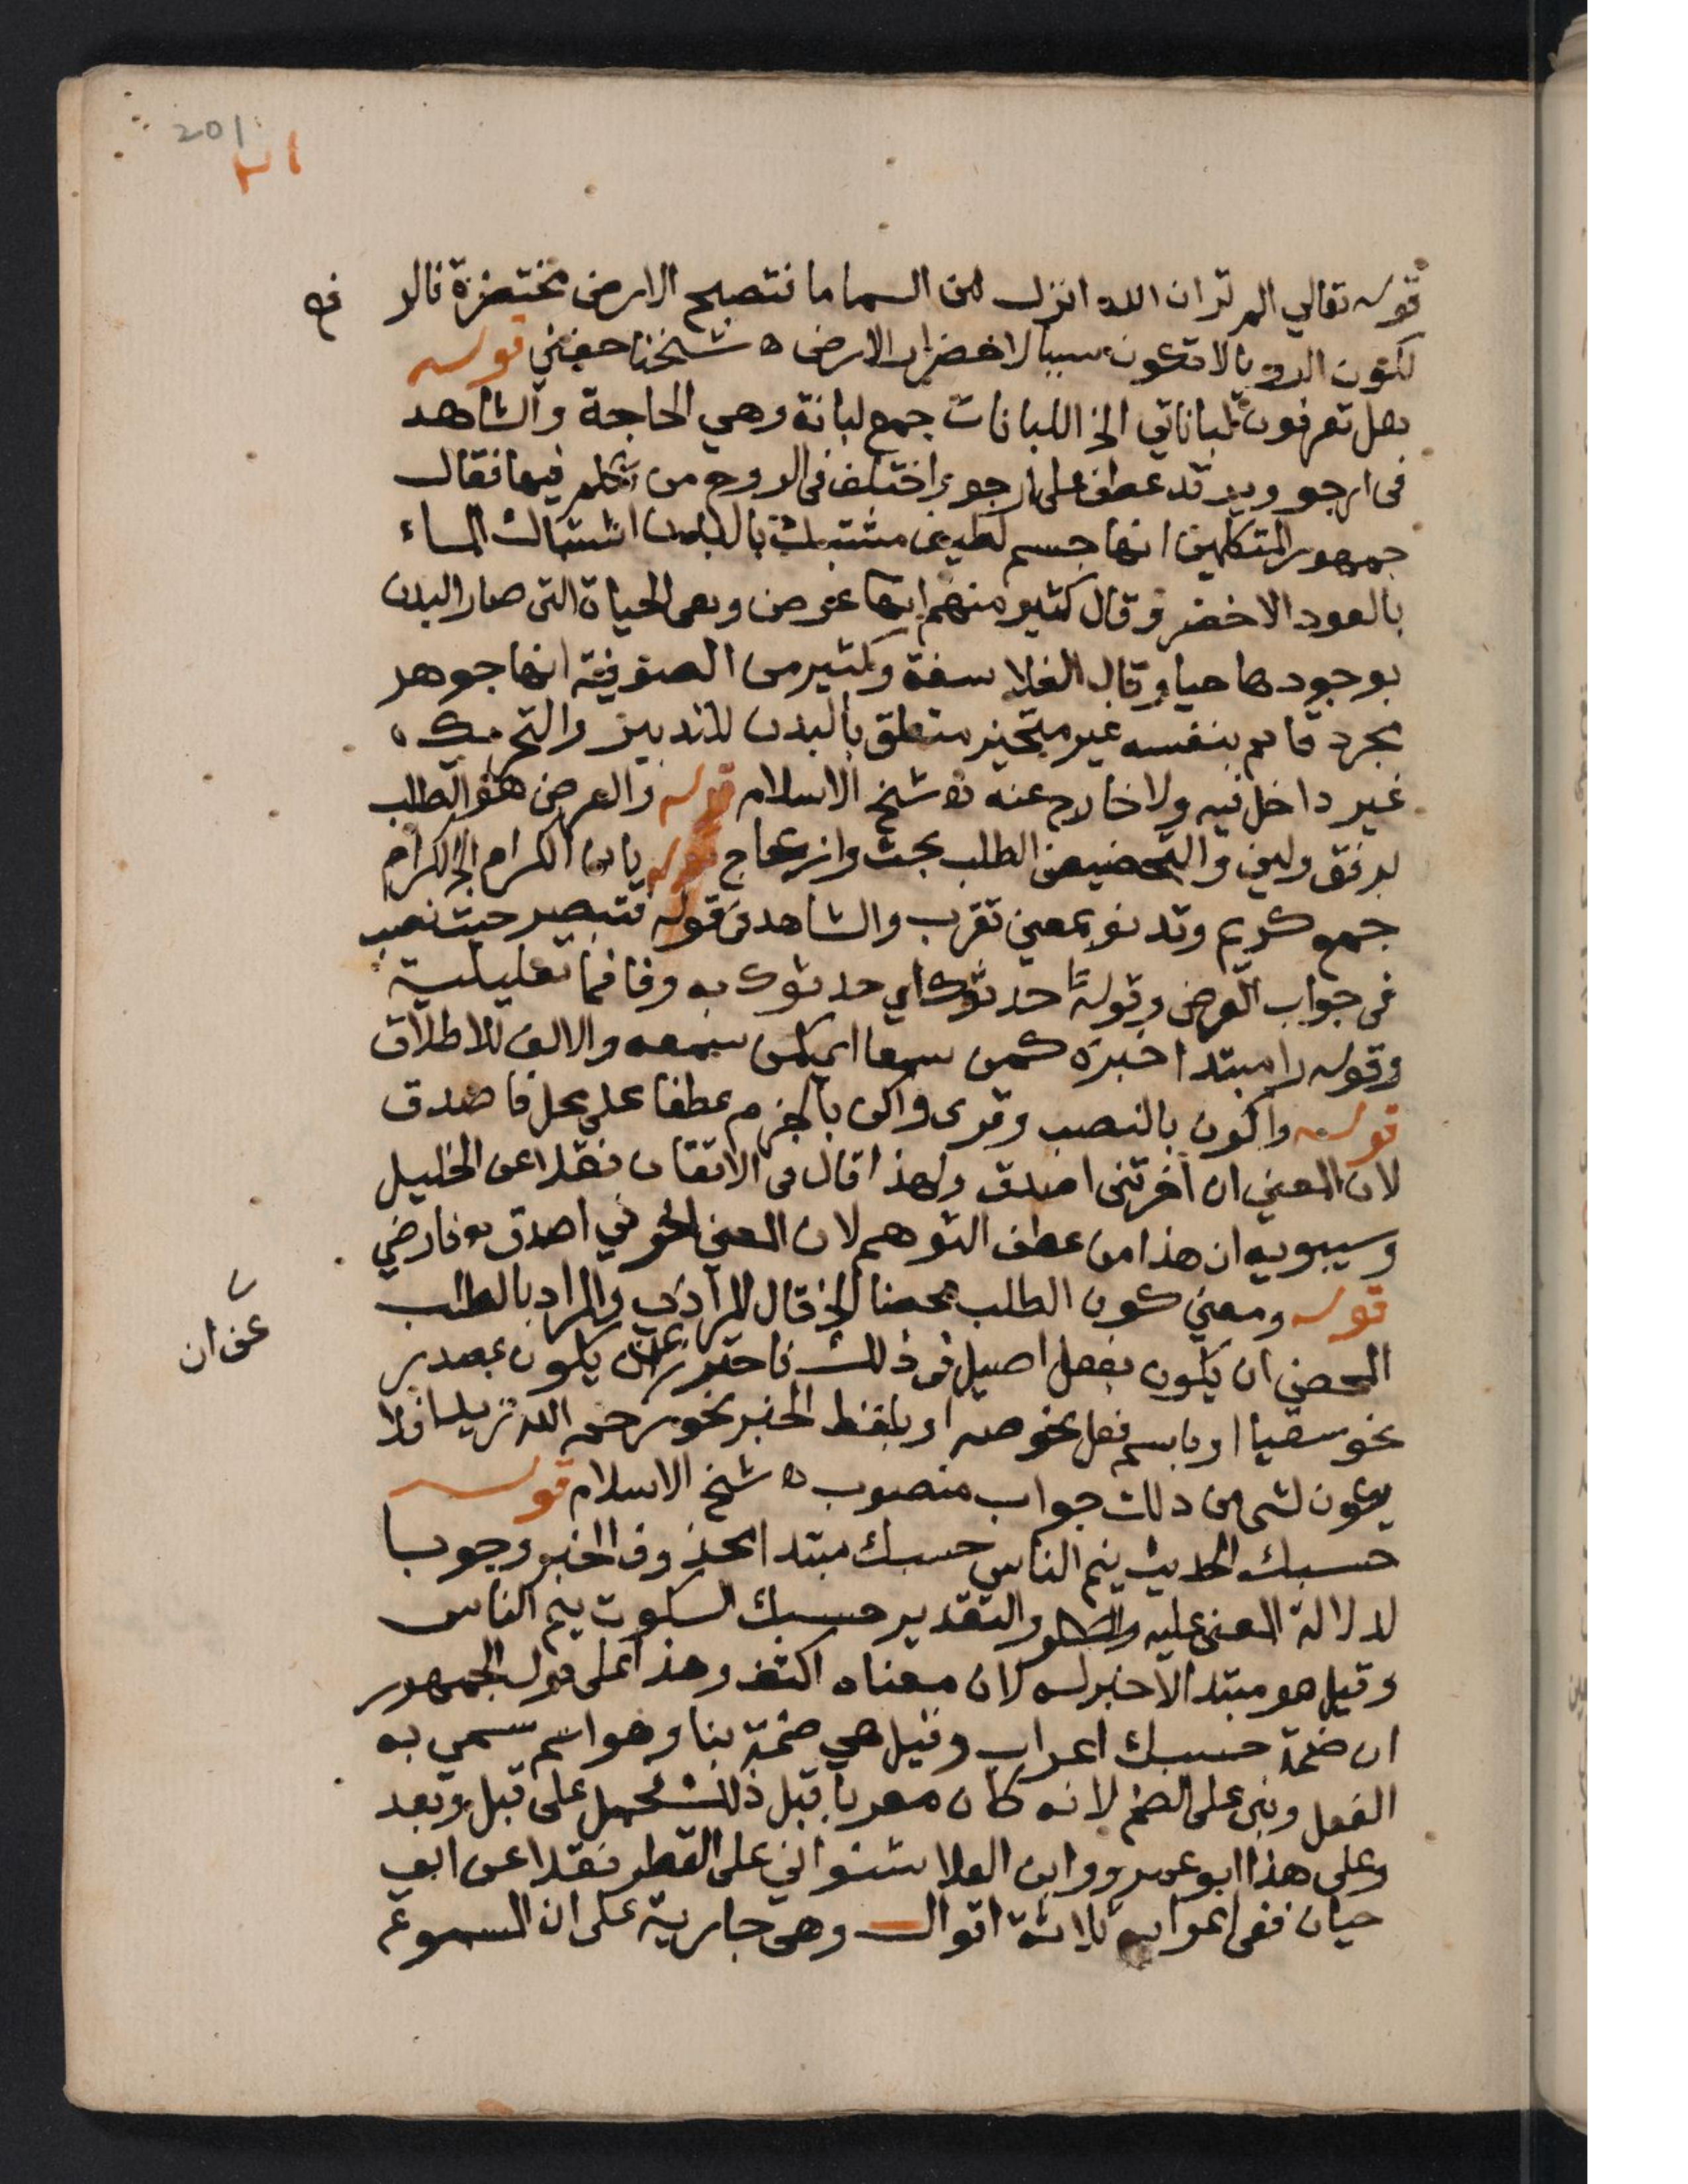 201
قوله تعالي الم تر ان الله انزل من السما ما فتصبح الارض مخضرة فالر
لكون الروية لا تكون سببا لاخضرار الارض ه شيخنا حفني قوله
هل تعرفون لباناتي الخ اللبانات جمع لبانة وهي الحاجة والشاهد
في ارجو ويرتد عطف على ارجو واختلف في الروح من تكلم فيها فقال
جمهور المتكلمين انها جسم لطيف مشتبك بالبدن اشتباك الماء
بالعود الاخضر وقال كثير منهم انها عرض وهي الحياة التي صار البدن
بوجودها حيا وقال الفلاسفة وكثير من الصوفية انها جوهر
مجرد قايم بنفسه غير متحيز متعلق بالبدن للتدبير والتحريك
غير داخل فيه ولا خارج عنه ه شيخ الاسلام قوله والعرض هو الطلب
برفق ولين والتحضيض الطلب بحث وازعاج قوله يا بن الكرام الخ الكرام
جمع كريم وتدنو بمعني تقرب والشاهد في قوله فتبصر حيث نصب
في جواب العرض وقوله حدثوك اي حدثوك به وفا فما تعليلية
وقوله راء مبتدا خبره كمن سمعا اي كمن سمعه والالف للاطلاق
قوله واكون بالنصب وقري واكن بالجزم عطفا على محل فاصدق
لان المعني ان اخرتني اصدق ولهذا قال في الاتقان نقلا عن الخليل
وسيبويه ان هذا من عطف التوهم لان المعني اخرني اصدق ه فارضي
قوله ومعني كون الطلب محضا الخ قال المرادي والمراد بالطلب
المحض ان يكون بفعل اصيل في ذلك فاحترز عن ان يكون بمصدر
نحو سقيا او باسم فعل نحو صه او بلفظ الخبر نحو رحم الله زيدا فلا
يكون لشي من ذلك جواب منصوب ه شيخ الاسلام قوله
حسبك الحديث ينم الناس حسبك مبتدا محذوف الخبر وجوبا
لدلالة المعني عليه والتقدير حسبك السكوت ينم الناس
وقيل هو مبتدا لا خبر له لان معناه اكتف وهذا على قول الجمهور
ان ضمة حسبك اعراب وقيل هي ضمة بنا وهو اسم سمي به
الفعل وبني على الضم لانه كان معربا قبل ذلك فحمل على قبل وبعد
وعلى هذا ابو عمرو وابن العلا شنواني على القطر نقلا عن ابي
حيان ففي اعرابه ثلاثة اقوال وهي جارية على ان المسموع
عن ان